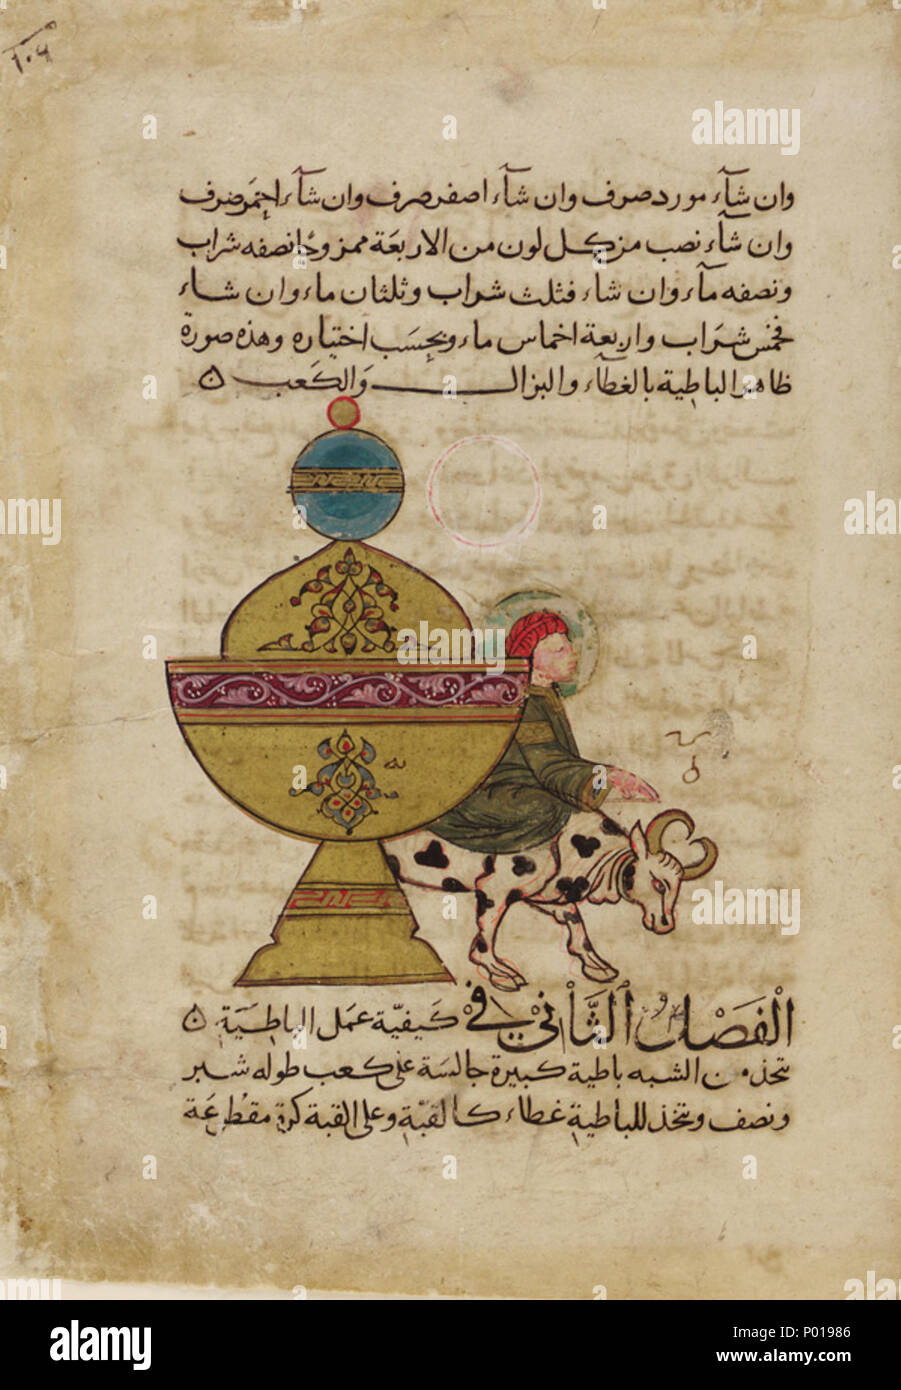 ١٠٤
وان شآء مورد صرف وان شآء اصفر صرف وان شآء احمر صرف
وان شآء نصب من كل لون من الاربعة ممزوجا نصفه شراب
ونصفه مآء وان شاء فثلث شراب وثلثان ماء وان شاء
فخمس شراب واربعة اخماس ماء وبحسب اختياره وهذه صورة
ظاهر الباطية بالغطاء والبزال والكعب
الفصل الثاني في كيفية عمل الباطية
تتخذ من الشبه باطية كبيرة جالسة على كعب طوله شبر
ونصف ويتخذ للباطية غطاء كالقبة وعلى القبة كرة مقطوعة
alamy
Image ID: P01986
www.alamy.com